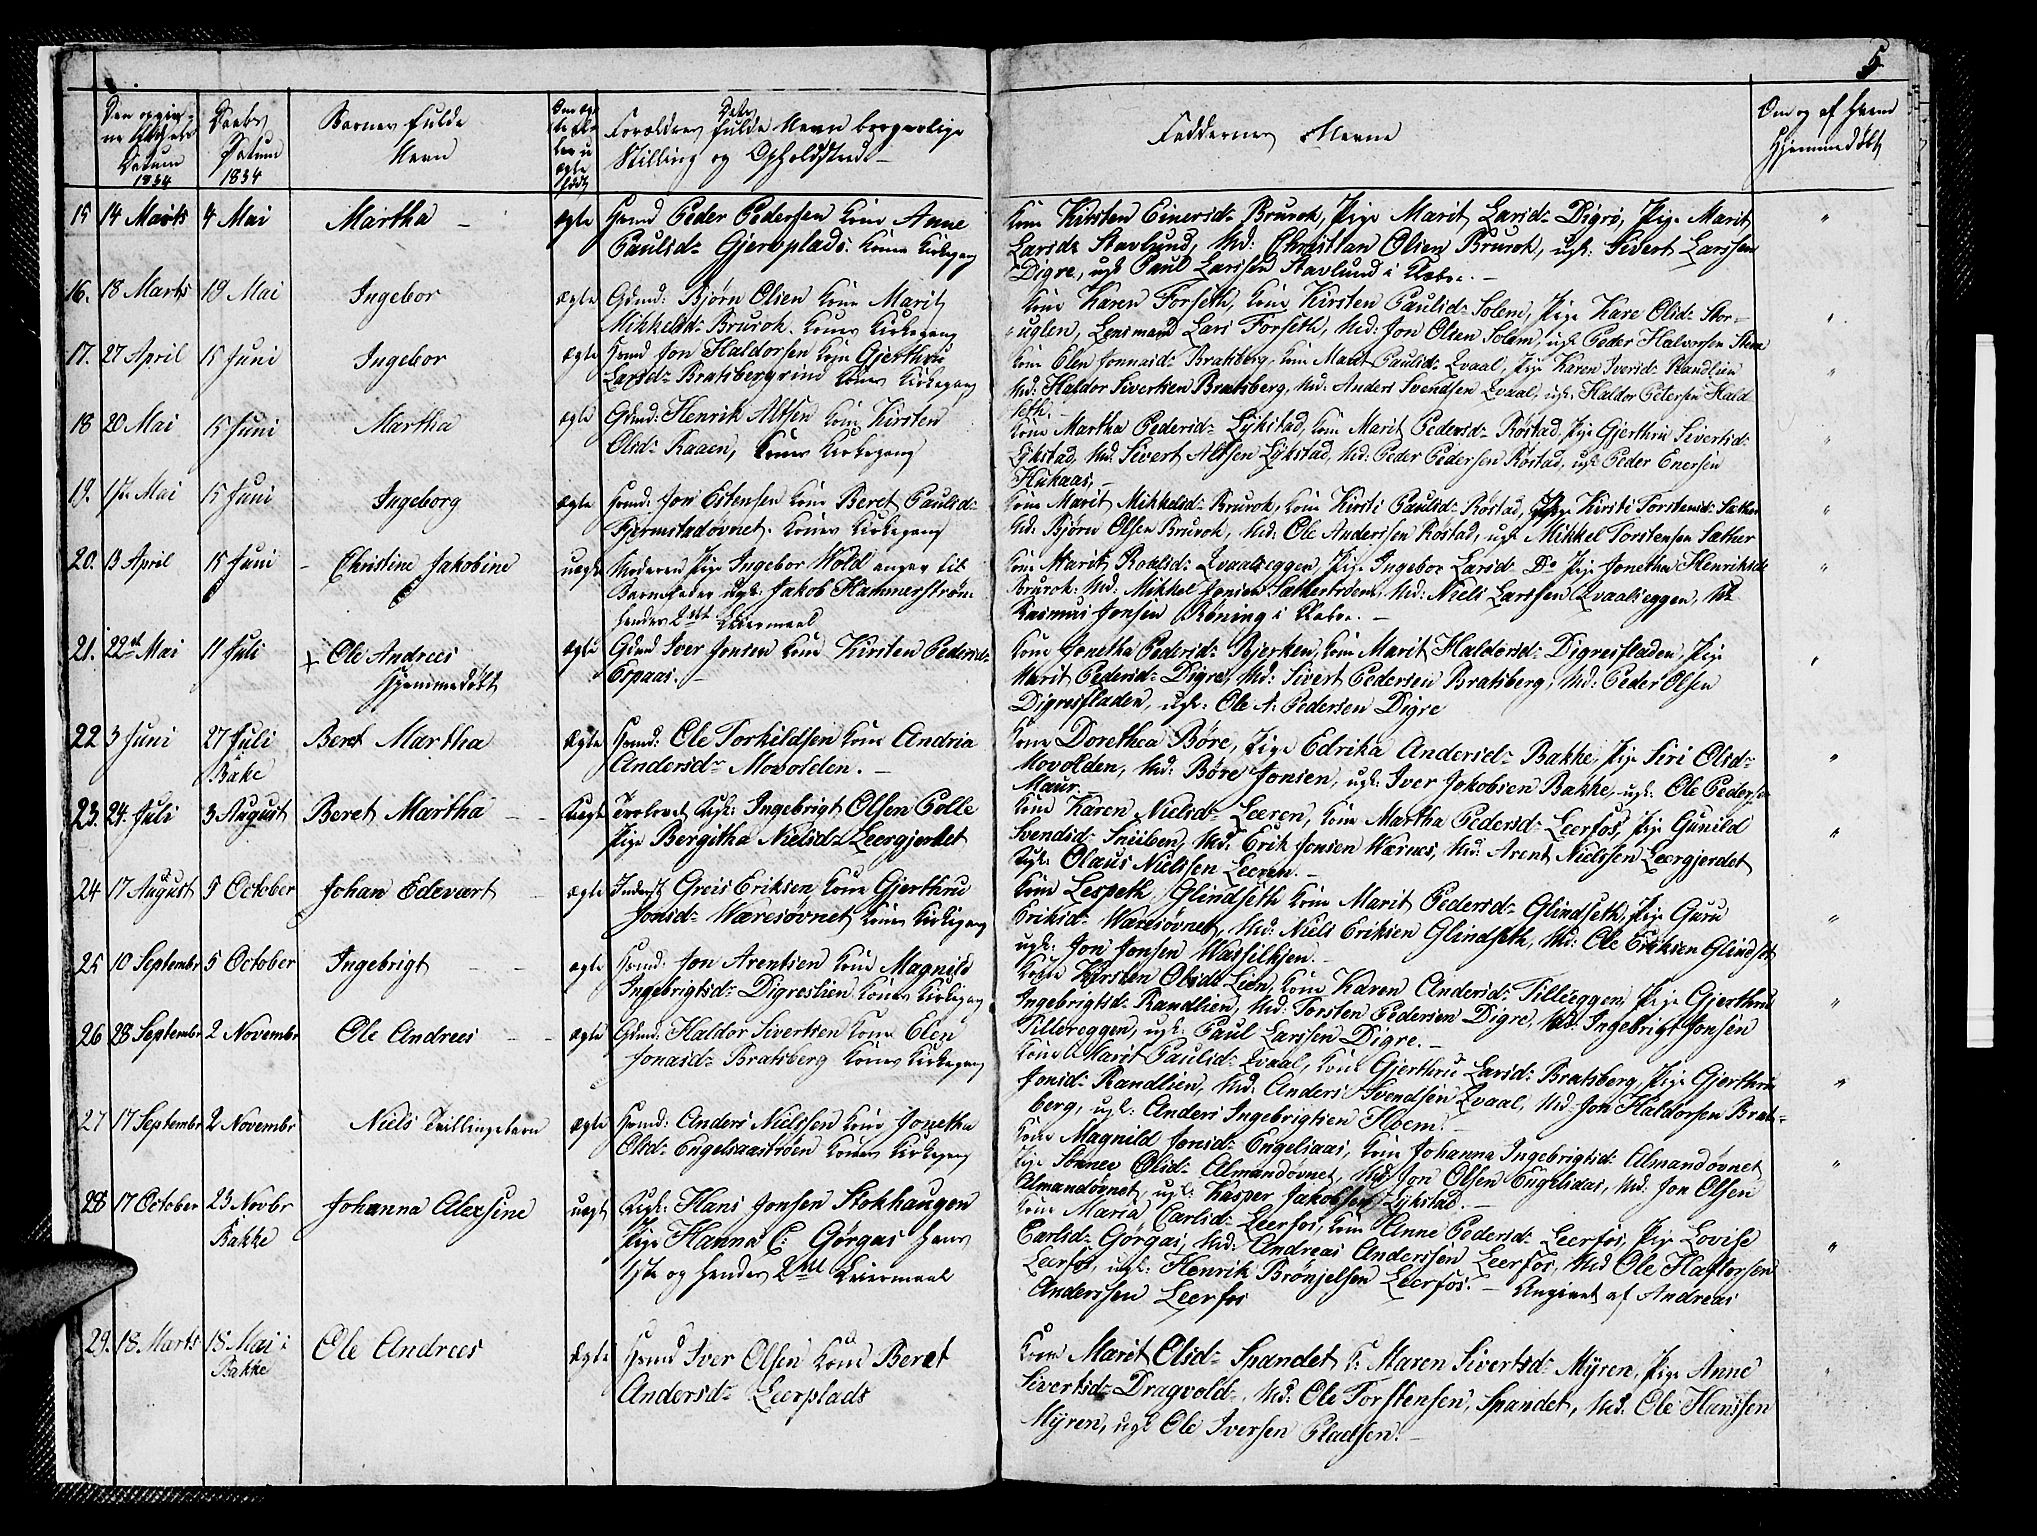 5
Den opgiv-
ne Fødsels
Datum
1834
Daabs
Datum
1834
Barnes fulde
Navn
Om ægte eller uægte født
Forældres fulde Navn borgerlige
Stilling og Opholdssted
Faddernes Navne
Om og af hvem
Hjemmedøbt
15 14 Marts 4 Mai Martha ægte Hmd Peder Pedersen Kone Anne
Paulsd- Gjervplads. Kones Kirkegang
Kone Kirsten Einersd- Brurok, Pige Marit Larsd- Digre, Pige Marit
Larsd- Stavlund, Md: Christian Olsen Brurok, ugk: Sivert Larssen
Digre, ugk Paul Larssen Stavlund i Klæbo.-
16. 18 Marts 19 Mai Ingebor ægte Gdmd: Bjørn Olsen Kone Marit
Mikkelsd- Brurok. Kones Kirkegang
Kone Karen Forseth, Kone Kirsten Paulsd- Solem, Pige Kare Olsd- Stor-
uglen, Lensmand Lars Forseth, Md: Jon Olsen Solem, ugk Peder Halvorsen
17. 27 April 15 Juni Ingebor ægte Hmd Jon Haldorsen Kone Gjerthru
Larsd- Bratsbergrind Kones Kirkegang
Kone Elen Jonnasd- Bratsberg. Kone Marit Paulsd- Qvaal, Pige Karen Iversd- Randlien
Md: Haldor Sivertsen Bratsberg, Md: Anders Svendsen Qvaal, ugk: Haldor Petersen Hald
seth.-
18 20 Mai 15 Juni Martha ægte Gdmd: Henrik Altsen Kone Kirsten
Olsd- Raaen, Kones Kirkegang
Kone Martha Pedersd- Lykstad, Kone Marit Pedersd- Røstad, Pige Gjerthru Sivertsd-
Lykstad, Md: Sivert Altsen Lykstad, Md: Peder Pedersen Røstad, ugk Peder Enersen
Hukaas,-
19. Mai 15 Juni Ingeborg ægte Hmd: Jon Estensen Kone Beret Paulsd-
Gjermstadøvnet. Kones Kirkegang
Kone Marit Mikkelsd- Brurok, Kone Kirsti Paulsd- Røstad, Pige Kirsti Torstensd- Sæther
Md: Bjørn Olsen Brurok, Md: Ole Anderssen Røstad, ugk Mikkel Torstensen Sæther
20. 13 April 15 Juni - Christine Jakobine uægte Moderen Pige Ingebor Wold angav til
Barnefader ugk: Jakob Hammerstrøm
hendes 2det Leiermaal
Kone Marit Roalsd- Qvaalseggen, Pige Ingebor Larsd- Do Pige Jonetha Henriksd-
Brurok. Md: Mikkel Jonsen Sæthertrøen, Md: Niels Larssen Qvaalseggen, Md
Rasmus Jonsen Røning i Klæbo.-
21. 22de Mai 11 Juli + Ole Andrees
Hjemmedøbt
ægte Gdmd Iver Jonsen Kone Kirsten Pedersd-
Espaas.-
Kone Jonetha Pedersd- Bjerken, Kone Marit Haldorsd- Digresfladen, Pige
Marit Pedersd- Digre, Md: Sivert Pedersen Bratsberg, Md: Peder Olsen
Digresfladen, ugk: Ole A: Pedersen Digre
22 3 Juni 27 Juli
Bake
Beret Martha Ægte Hmd: Ole Torkildsen Kone Andria
Andersd- Movolden.-
Kone Dorethea Børe, Pige Edrika Andersd- Bakke, Pige Siri Olsd-
Movolden, Md: Børe Jonsen, ugk: Iver Jakobsen Bakke, ugk: Ole Pedersen
Maur.-
23. 24 Juli 3 August Beret Martha Uægte Trolovet Ugk: Ingebrigt Olsen Polle
Pige Bergitha Nielsd- Leergjerdet
Kone Karen Nielsd- Leeren, Kone Martha Pedersd- Leerfos, Pige Gunild
Svendsd- Sneiben, Md: Erik Jonsen Wærnes, Md: Arent Nielssen Leergjerdet
Ugk: Olaus Nielssen Leeren.-
24 17 August 5 October Johan Edevart ægte Inderst Greis Eriksen Kone Gjerthru
Jonsd- Wæresøvnet Kones Kirkegang
Kone Lespeth Glindseth Kone Marit Pedersd- Glindseth, Pige Guru
Eriksd- Wæresøvnet, Md: Niels Eriksen Glindseth, Md: Ole Eriksen Glindset
ugk: Jon Jonsen Wasselhjen.-
25 10 Septembr 5 October Ingebrigt ægte Hmd: Jon Arentsen Kone Magnild
Ingebrigtsd- Digreslien Kones Kirkegang
Kone Kirsten Olsdt Lien, Kone Karen Andersd- Tilleggen, Pige Gjerthru
Ingebrigtsd- Randlien, Md: Torsten Pedersen Digre, Md: Ingebrigt Jonsen
Tillereggen, ugk: Paul Larssen Digre.-
26 28 Septembr 2 Novembr Ole Andrees ægte Gdmd: Haldor Sivertsen Kone Elen
Jonasd- Bratsberg Kones Kirkegang
Kone Marit Paulsd- Qvaal, Kone Gjerthru Larsd- Bratsberg, Pige Gjerthru
Jonsd- Randlien, Md: Anders Svendsen Qvaal, Md: Jon Haldorsen Brats-
berg, ugk: Anders Ingebrigtsen Hoem.-
27 17 Septembr 2 Novembr Niels Tvillingebarn ægte Hmd: Anders Nielssen Kone Jonetha
Olsd- Engelsaastrøen Kones Kirkegang
Kone Magnild Jonsd- Engelsaas, Kone Johanna Ingebrigtsd- Almandøvnet
Pige Olsd- Almandøvnet, Md Jon Olsen Engelsaas, Md: Jon Olsen
Almandøvnet, ugk: Kasper Jakobsen Lykstad.-
28 17 October 23 Novbr
Bakke
Johanna Alexsine uægt Ugk: Hans Jonsen Stokhaugen
Pige Hanna C: Gørgas hans
1ste og hendes 2det Leiermaal
Kone Maria Carlsd- Leerfos, Kone Anne Pedersd- Leerfos, Pige Lovise
Carlsd- Gørgas, Md: Andreas Anderssen Leerfos, Md Ole Haftorsen
Leerfos, ugk: Henrik Brønjelsen Leerfos.- Angivet af Andreas
Anderssen Leerfos
29. 18. Marts 18. Mai i
Bakke
Ole Andrees Ægte Hmd Iver Olsen Kone Beret
Andersd- Leerplads
Kone Marit Olsd- Spandet K: Maren Sivertsd- Myren, Pige Anne
Sivertsd- Dragvold-, Md: Ole Torstensen, Spandet, Md: Ole Hanssen
Myren, ugk Ole Iversen Pladsen.-